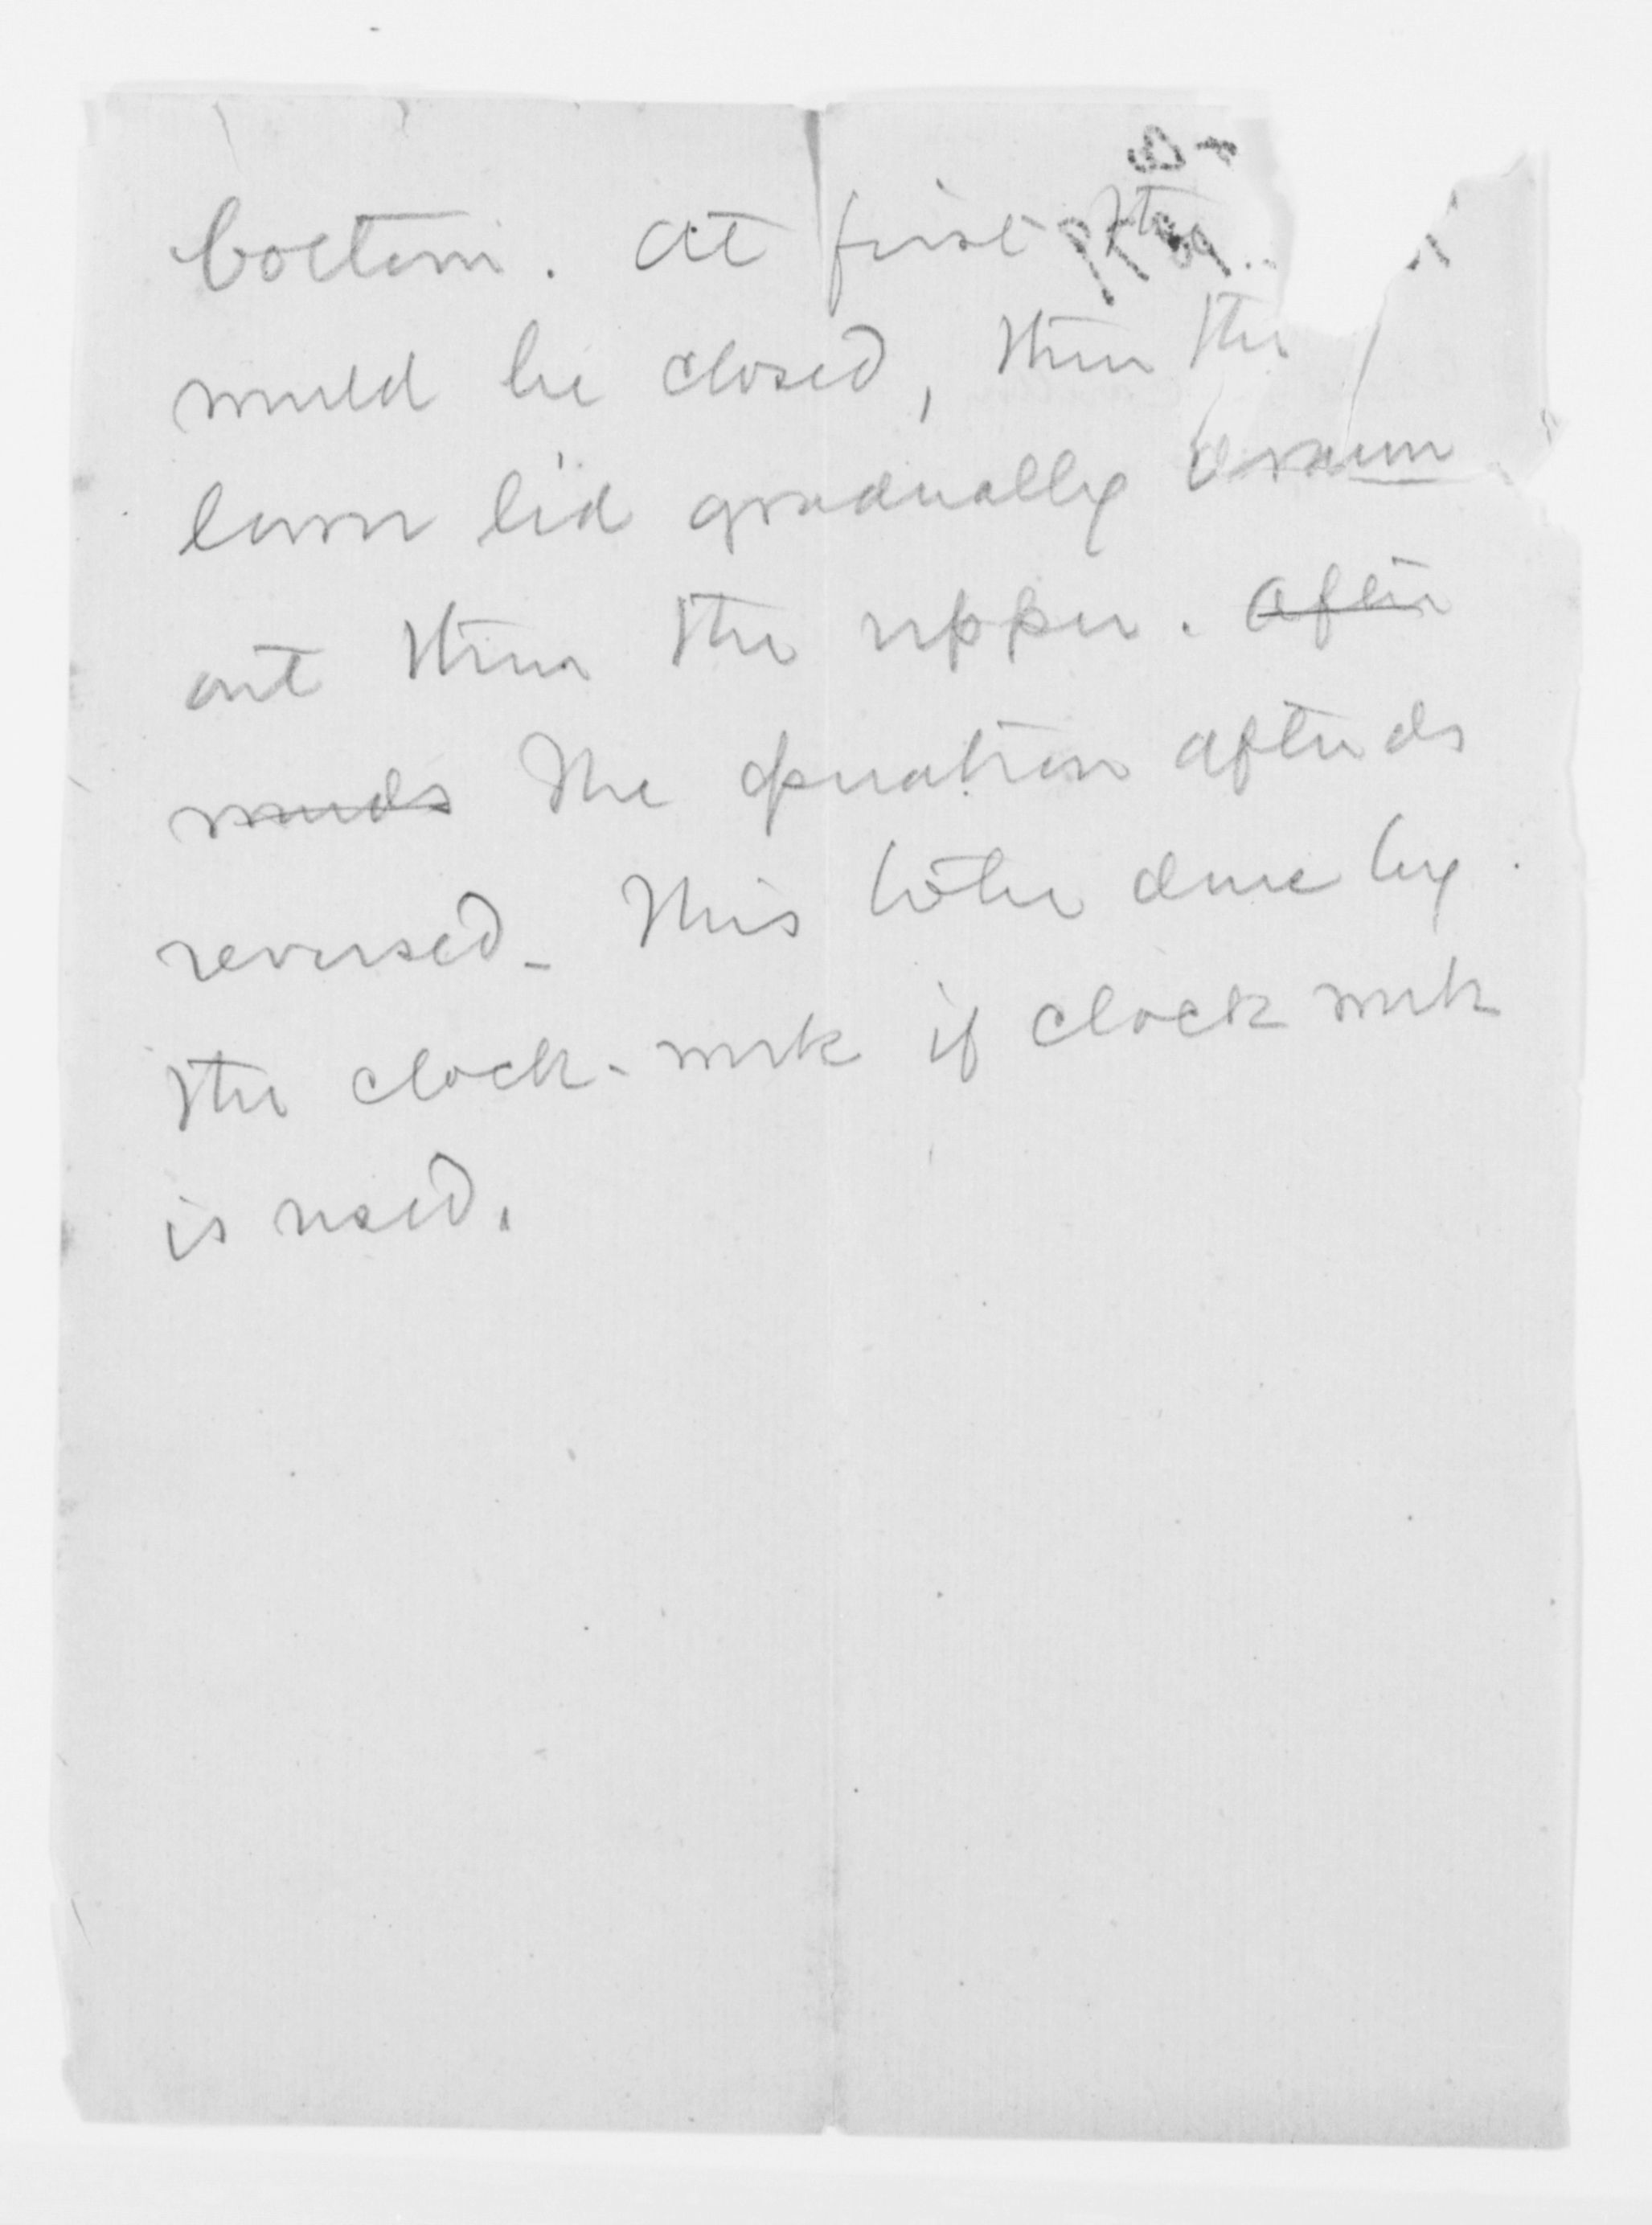 bottom. At first the
would be closed, then the
lower lid gradually drawn
out then the upper. After
wards The operation aftwds
reversed_ This to be done by
the clock-work if clock work
is used.